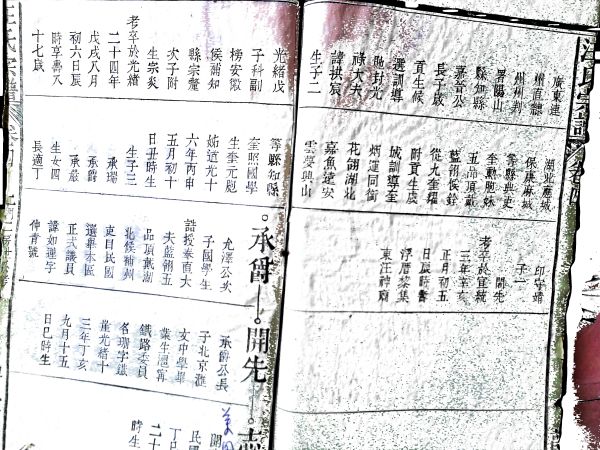 廣東連
州直隸
州州判
署陽山
縣知縣
嘉音公
長子啟
貢生候
選訓導
貤封光
祿大夫
諱拱宸
生子二
保康麻城
等縣典吏
奎勳胞妹
五品頂戴
藍翎候銓
從九奎耀
附貢生辰
城訓導奎
炳運同銜
花翎湖北
嘉魚遠安
雲夢興山
印守靖
子一
開先
考卒於宣統
三年辛亥
正月初五
日辰時葬
浮厝黎集
東汪神廟
光緒戊
子科副
榜安徽
候補知
縣宗鰲
次子附
生宗炎
考卒於光緒
二十四年
戊戌八月
初六日辰
時享壽八
十七歲
等縣知縣
奎照國學
生奎元胞
姊道光十
六年丙申
五月初十
日丑時生
生子三
承瑞
承爵
承嚴
生女四
長適丁
承爵—開先—
允澤公次
子國學生
誥授奉直大
夫藍翎五
品頂戴湖
北候補州
吏目民國
選舉本區
正式議員
諱如理字
仲青號
承爵公長
子北京滙
文中學畢
業生
鐵路委員
名瑞字鐵
崖光緒十
三年丁亥
九月十五
日巳時生
時生